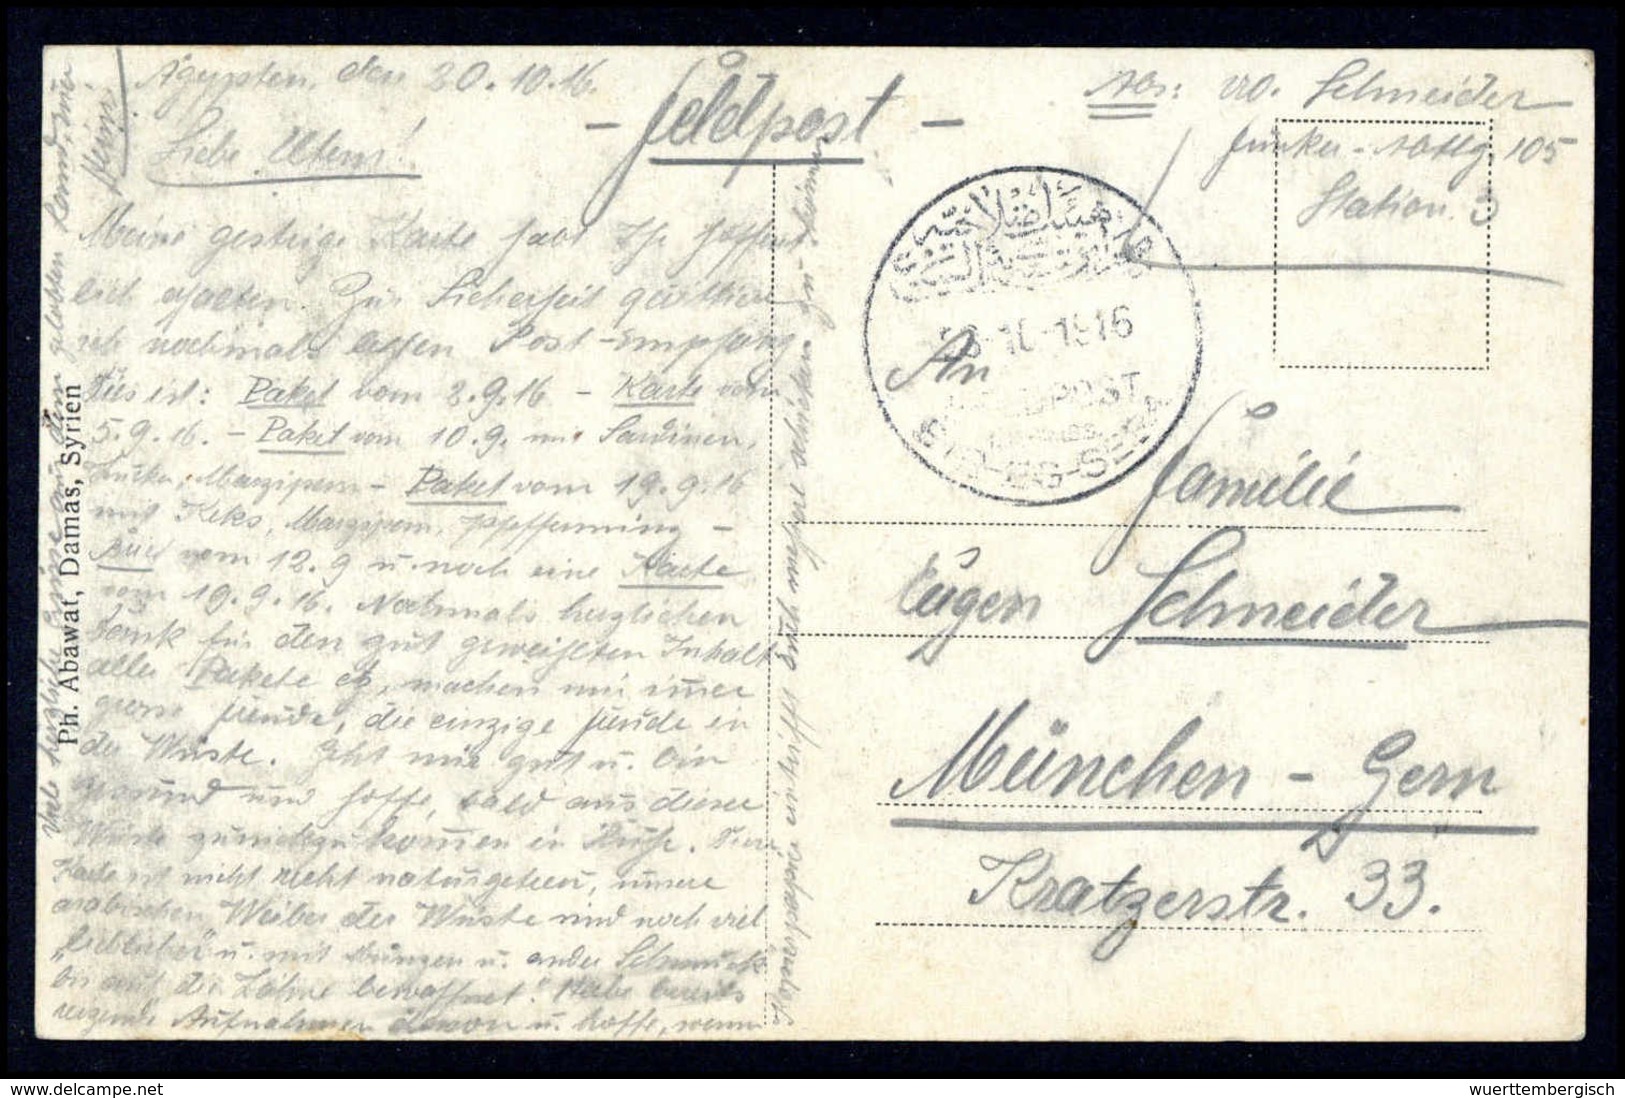 Ägypten, den 20.10.16.
Liebe Eltern!
Meine gestrige Karte habt Ihr hoffent-
lich erhalten. Zur Sicherheit quittiere
ich nochmals letzten Post-Empfang
Dies ist: Paket vom 2.9.16 - Karte vom
5.9.16. - Paket vom 10.9. mit Sardinen,
Zucker, Marzipan - Paket vom 19.9.16
mit Keks, Marzipan, Pfefferminz -
Brief vom 12.9 u. noch eine Karte
vom 19.9.16. Nochmals herzlichen
Dank für den gut gewählten Inhalt
aller Pakete etz, machen mir immer
grosse Freude, die einzige Freude in
der Wüste. Geht mir gut u. bin
gesund und hoffe, bald aus dieser
Wüste zurückzukommen in Ruhe. Diese
Karte ist nicht recht naturgetreu, unsere
arabischen Weiber der Wüste sind noch viel
"lieblicher" u. mit Münzen u. ander Schmuck
bis auf die Zähne bewaffnet. Habe bereits
Aufnahmen davon u. hoffe, wenn
Viele herzliche Grüsse aus dem gelobten Land, Euer
- Feldpost -
Abs: Schneider
Junker - Abtlg. 105
Station 3
10.1916
An
Familie
Eugen Schneider
München - Gern
Kratzerstr. 33.
Ph. Abawat, Damas, Syrien
delcampe.net
wuerttembergisch